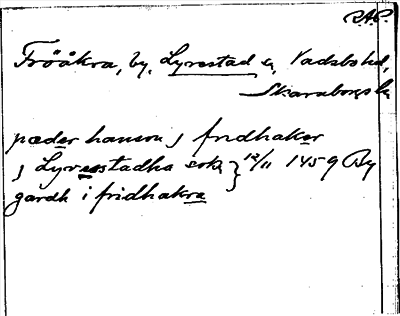 R.A.P.
Fröåkra, by, Lyrestad sn, Vadsbo hd,
Skaraborgs län
pæder hanson j fridhaker
j Lyrestadha sokn } 12/11 1459 By
gardh i fridhakra